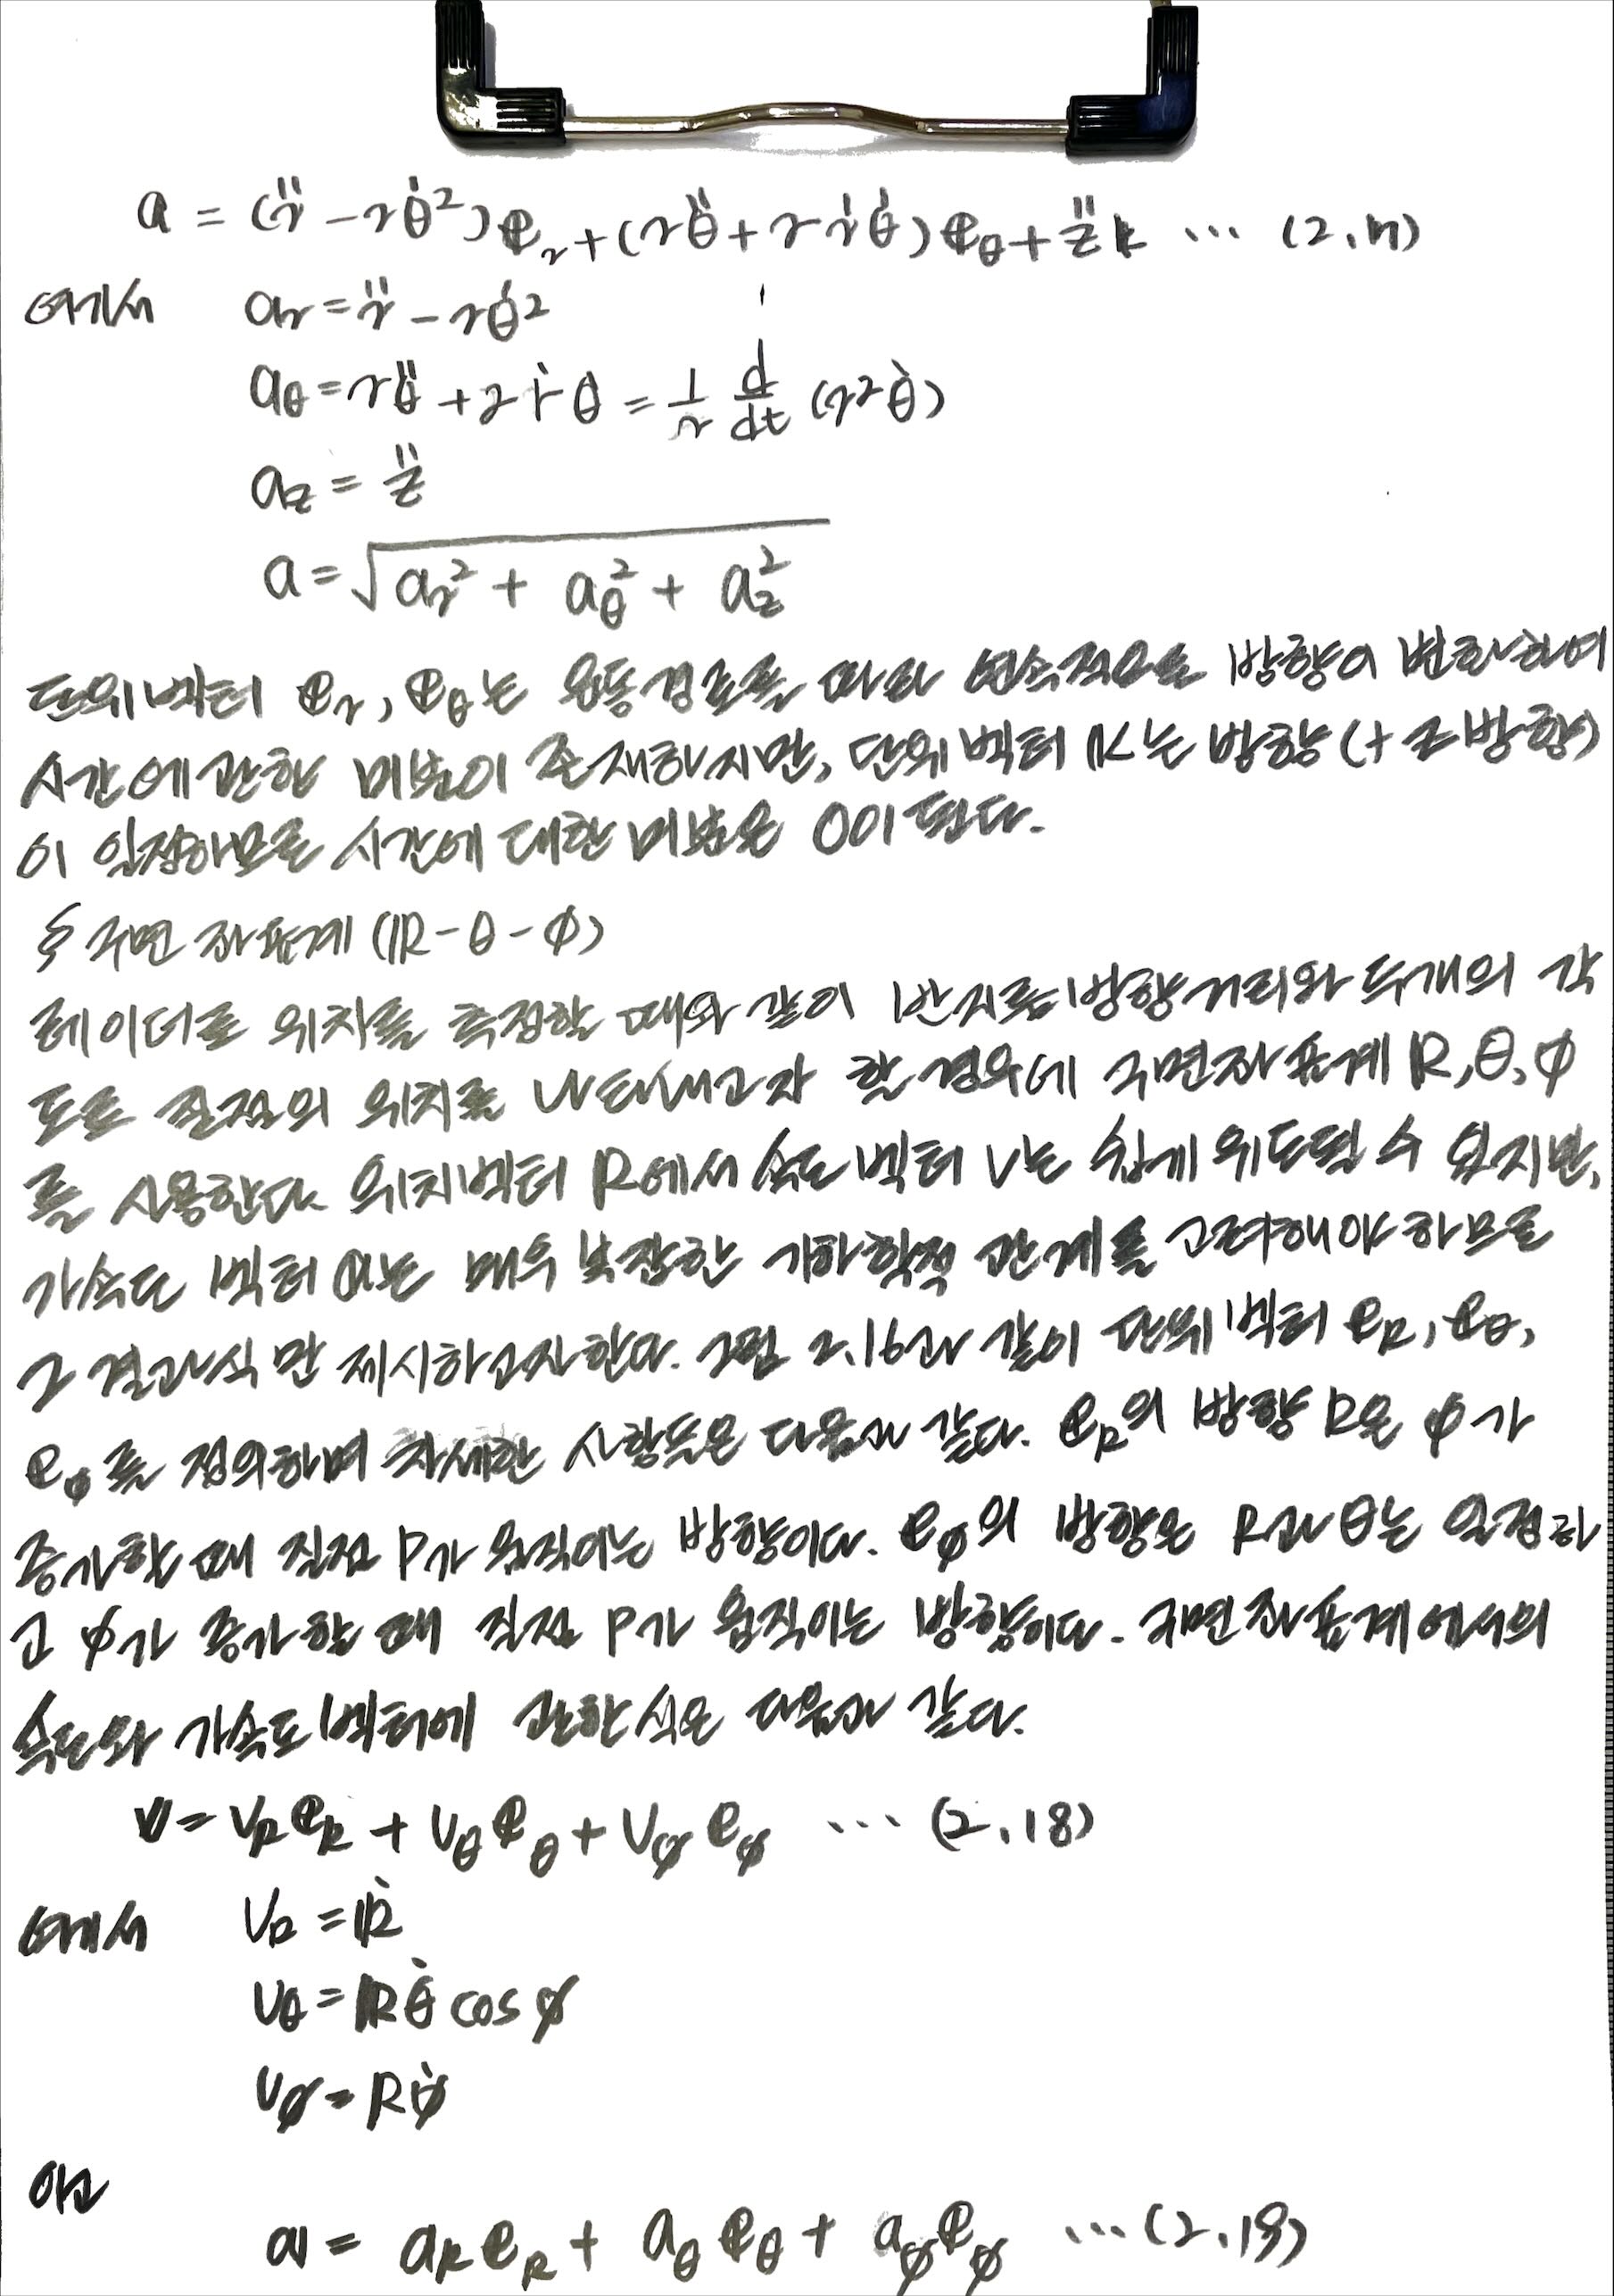 a = (r̈ - rθ̇²)e_r + (rθ̈ + 2ṙθ̇)e_θ + z̈k ⋯ (2.17)
여기서 a_r = r̈ - rθ̇²
a_θ = rθ̈ + 2ṙθ̇ = 1/r d/dt (r²θ̇)
a_z = z̈
a = √(a_r² + a_θ² + a_z²)
단위벡터 e_r, e_θ는 운동경로를 따라 연속적으로 방향이 변화하여
시간에 관한 미분이 존재하지만, 단위벡터 k는 방향(+z방향)
이 일정하므로 시간에 대한 미분은 0이 된다.
§ 구면 좌표계 (R-θ-ϕ)
레이더로 위치를 측정할 때와 같이 반지름방향거리와 두개의 각
도로 질점의 위치를 나타내고자 할 경우에 구면좌표계 R, θ, ϕ
를 사용한다. 위치벡터 R에서 속도벡터 v는 쉽게 유도될 수 있지만,
가속도 벡터 a는 매우 복잡한 기하학적 관계를 고려해야 하므로
그 결과식만 제시하고자 한다. 그림 2.16과 같이 단위벡터 e_R, e_θ,
e_ϕ를 정의하며 자세한 사항들은 다음과 같다. e_R의 방향 R은 ϕ가
증가할 때 질점 P가 움직이는 방향이다. e_ϕ의 방향은 R과 θ는 일정하
고 ϕ가 증가할 때 질점 P가 움직이는 방향이다. 구면좌표계에서의
속도와 가속도벡터에 관한 식은 다음과 같다.
v = v_R e_R + v_θ e_θ + v_ϕ e_ϕ ⋯ (2.18)
여기서 v_R = Ṙ
v_θ = Rθ̇ cos ϕ
v_ϕ = Rϕ̇
이고
a = a_R e_R + a_θ e_θ + a_ϕ e_ϕ ⋯ (2.19)